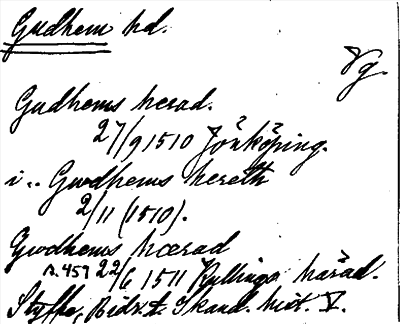 Gudhem hd.
Vg.
Gudhems herad.
27/9 1510 Jönköping.
i.. Gwdhems hereth
2/11 (1510).
Gwdhems hærad
A. 457 22/6 1511 Kullinga härad.
Styffe, Bidr. t. Skand. hist. V.